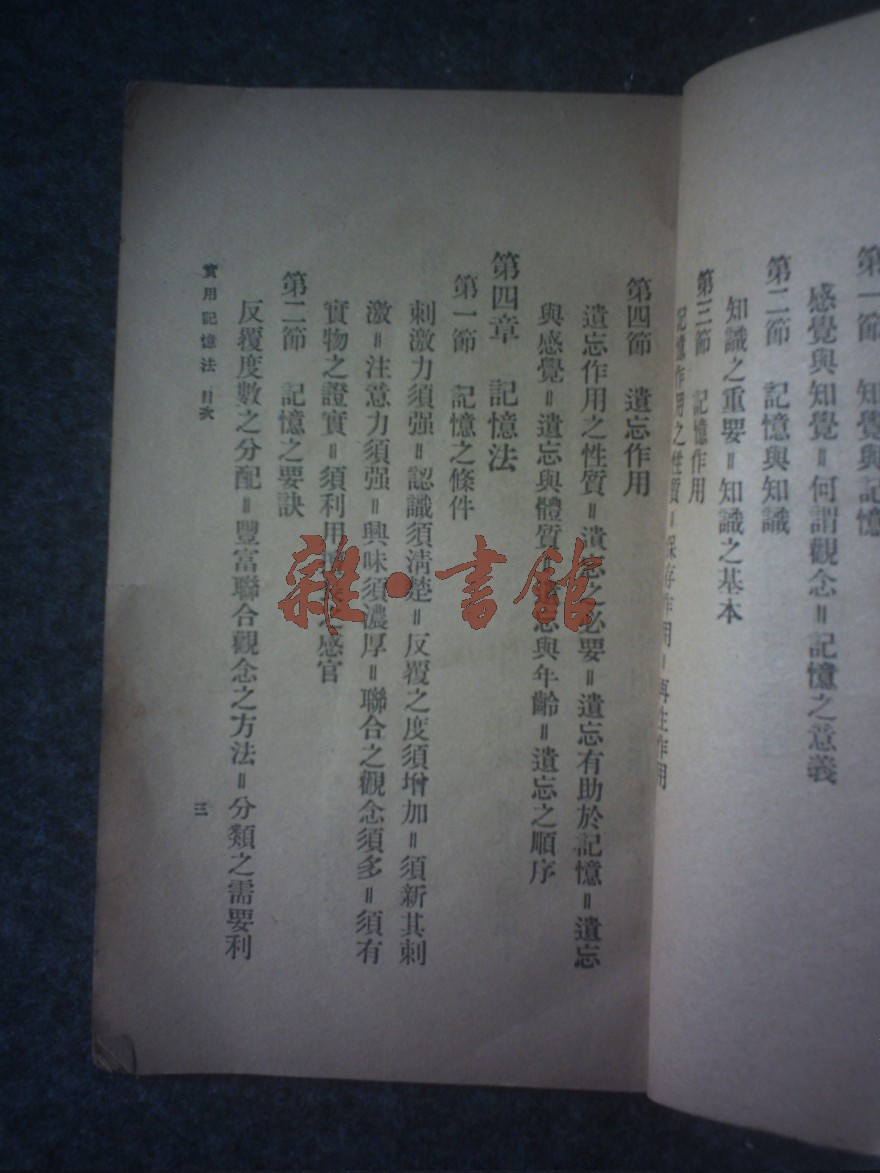 第一節　知覺與記憶
感覺與知覺＝何謂觀念＝記憶之意義
第二節　記憶與知識
知識之重要＝知識之基本
第三節　記憶作用
記憶作用之性質＝保存作用＝再生作用
第四節　遺忘作用
遺忘作用之性質＝遺忘之必要＝遺忘有助於記憶＝遺忘
與感覺＝遺忘與體質＝遺忘與年齡＝遺忘之順序
第四章　記憶法
第一節　記憶之條件
刺激力須强＝認識須淸楚＝反覆之度須增加＝須新其刺
激＝注意力須强＝興味須濃厚＝聯合之觀念須多＝須有
實物之證實＝須利用感官
第二節　記憶之要訣
反覆度數之分配＝豐富聯合觀念之方法＝分類之需要利
實用記憶法　目次
三
雜·書館